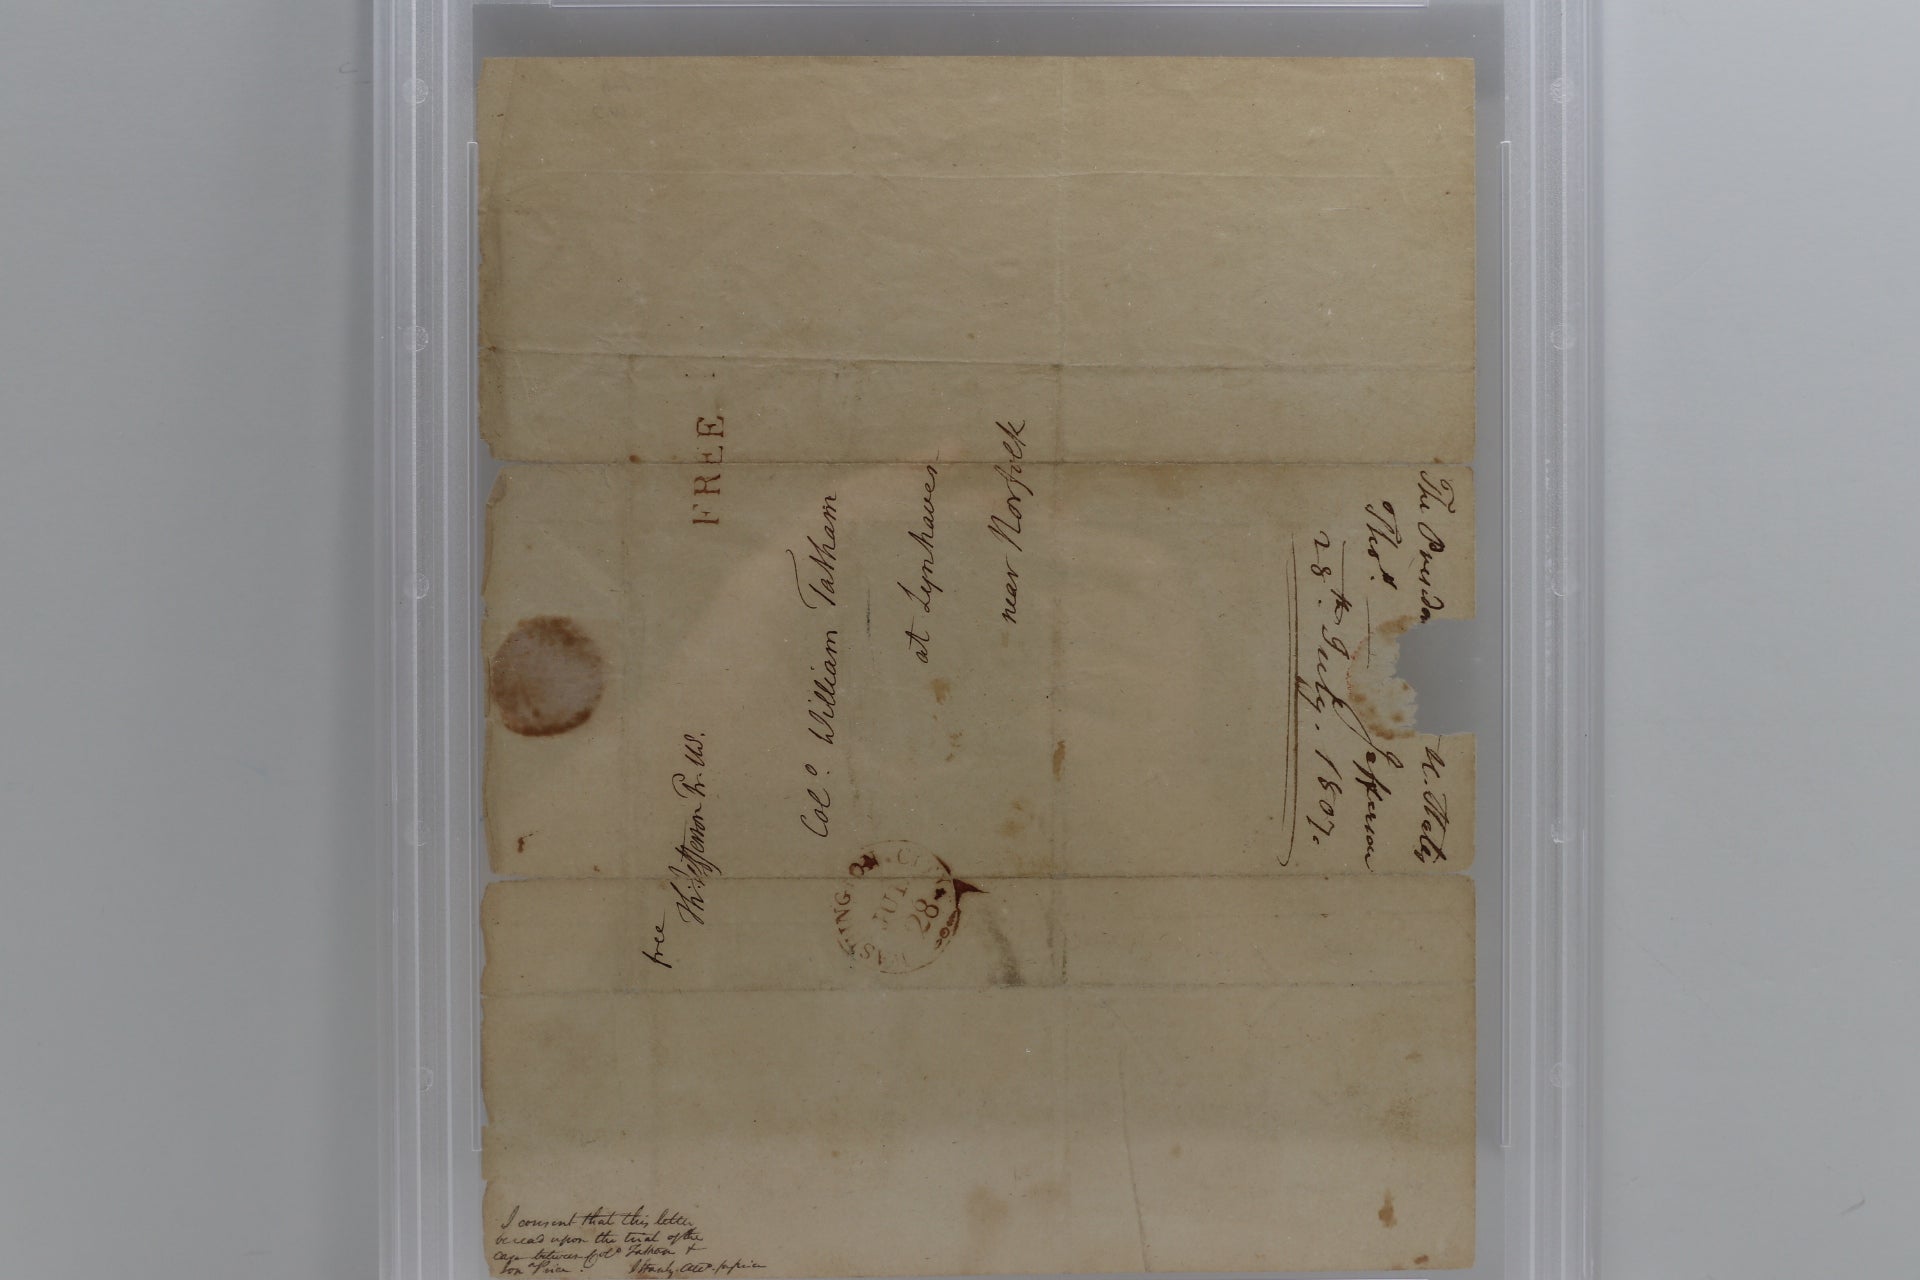 FREE
free
Th: Jefferson Pr. US.
Colo. William Tatham
at Lynhaven
near Norfolk
WASHINGTON. CITY
JUL
28
The Presiden U. States
Thos. Jefferson
28th July. 1807.
I consent that this letter
be read upon the trial of the
case between Colo Tatham &